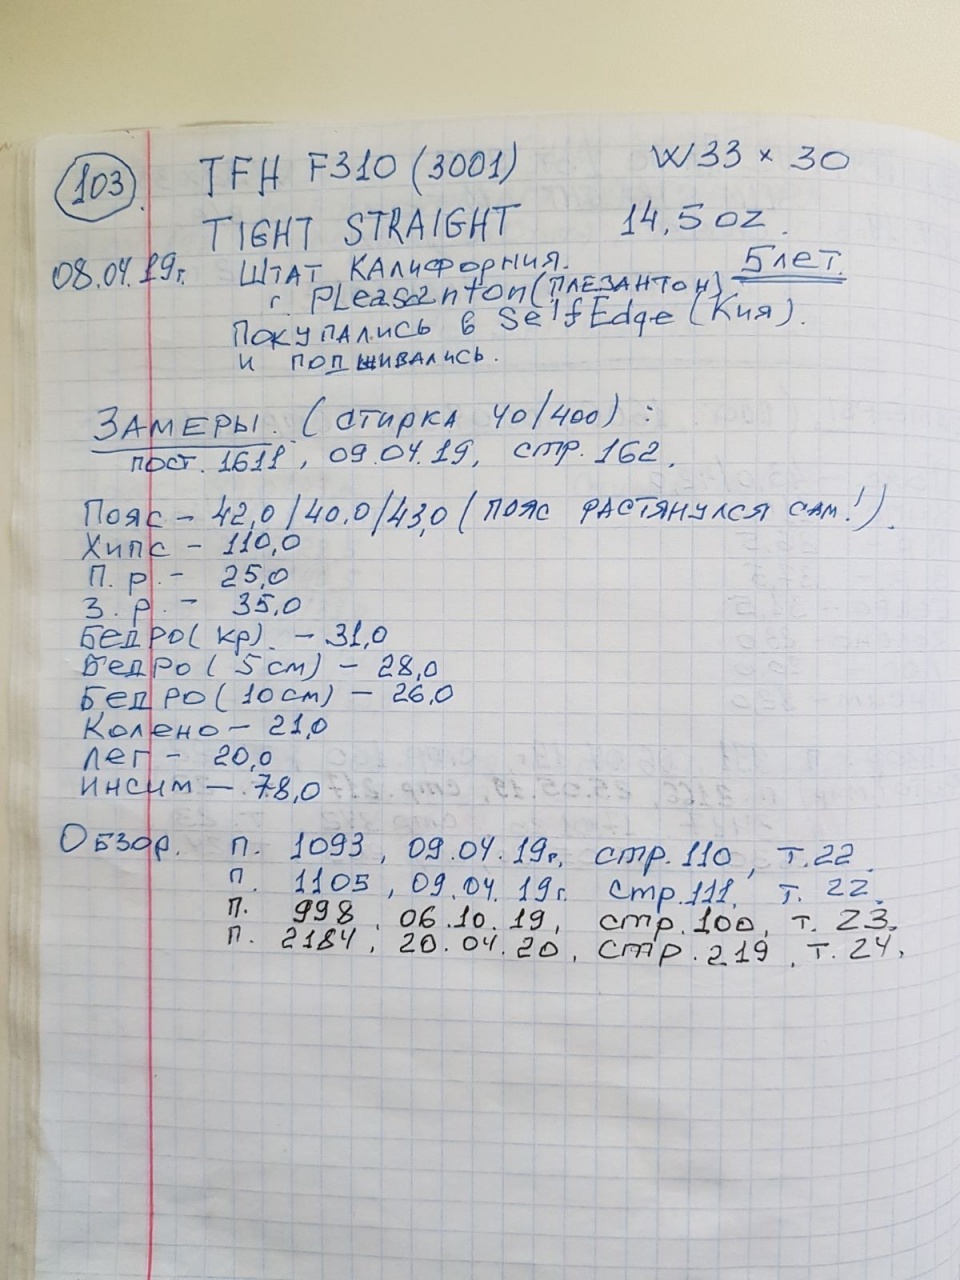 103. TFH F310 (3001) W33 × 30
TIGHT STRAIGHT 14,5 oz.
08.04.19г. Штат Калифорния. 5 лет.
г. Pleasanton (Плезантон)
Покупались в SelfEdge (Кия).
и подшивались.
Замеры. (стирка 40/400):
пост. 1611, 09.04.19, стр. 162.
Пояс - 42,0/40,0/43,0 (пояс растянулся сам!).
Хипс - 110,0
П.р. - 25,0
З.р. - 35,0
Бедро (кр). - 31,0
Бедро (5 см) - 28,0
Бедро (10 см) - 26,0
Колено - 21,0
Лег - 20,0
Инсим - 78,0
Обзор. п. 1093, 09.04.19г, стр. 110, т. 22.
п. 1105, 09.04.19г. стр. 111, т. 22.
п. 998, 06.10.19, стр. 100, т. 23.
п. 2184, 20.04.20, стр. 219, т. 24.